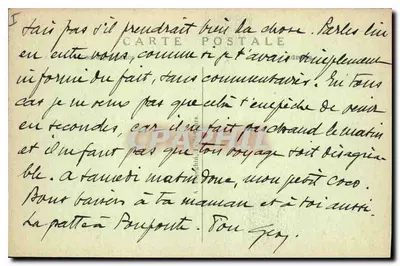 I
sais pas s'il prendrait bien la chose. Parles lui
CARTE POSTALE
en entre vous, comme si je t'avais simplement
informé du fait, sans commentaires. En tous
cas je ne veux pas que cela t'empêche de venir
en secondes, car il ne fait pas chaud le matin
et il ne faut pas que ton voyage soit désagréa-
ble. A samedi matin donc, mon petit coco.
Bons baisers à ta maman et à toi aussi.
La patte à Ton